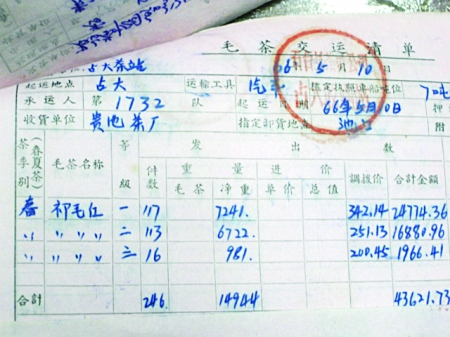 毛茶交运清单
占大茶站 66年5月10日
起运地点 占大 运输工具 汽车
承运人 第1732队 起运 66年5月10日
收货单位 贵池茶厂 指定卸货地点
茶季别(春夏茶) 毛茶名称 等级 件数 发出数
重量 进价 调拨价 合计金额
毛茶 净重 单价 总值
春 祁毛红 一 117 7241. 342.14 24774.36
〃 〃〃〃 二 113 6722. 251.13 16880.96
〃 〃〃〃 三 16 981. 200.45 1966.41
合计 246 14944 43621.73